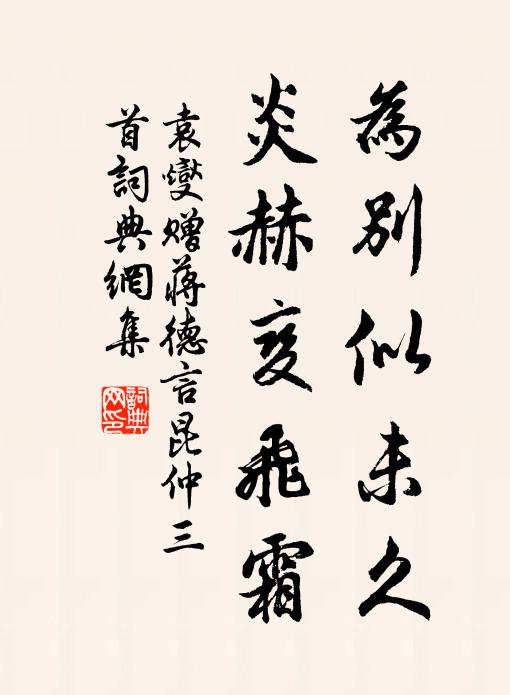 為別似未久
炎赫变飛霜
袁燮贈蔣德言昆仲三
首詞典網集
詞典
网印